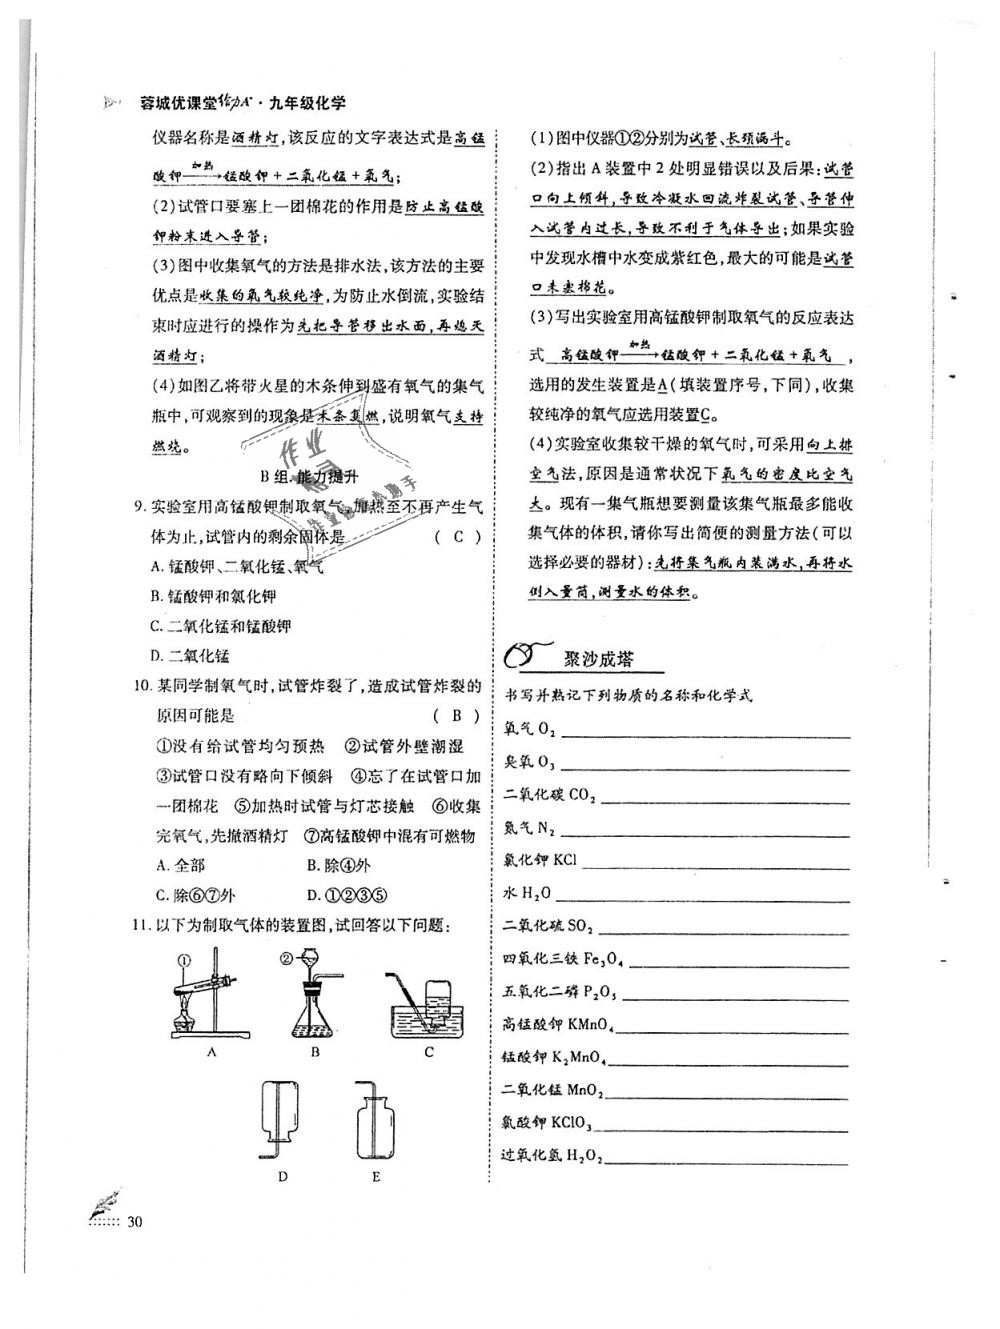 蓉城优课堂给力A⁺·九年级化学
仪器名称是酒精灯,该反应的文字表达式是高锰
酸钾 加热→ 锰酸钾+二氧化锰+氧气;
(2)试管口要塞上一团棉花的作用是防止高锰酸
钾粉末进入导管;
(3)图中收集氧气的方法是排水法,该方法的主要
优点是收集的氧气较纯净,为防止水倒流,实验结
束时应进行的操作为先把导管移出水面,再熄灭
酒精灯;
(4)如图乙将带火星的木条伸到盛有氧气的集气
瓶中,可观察到的现象是木条复燃,说明氧气支持
燃烧。
B组.能力提升
9.实验室用高锰酸钾制取氧气,加热至不再产生气
体为止,试管内的剩余固体是 ( C )
A.锰酸钾、二氧化锰、氧气
B.锰酸钾和氯化钾
C.二氧化锰和锰酸钾
D.二氧化锰
10.某同学制氧气时,试管炸裂了,造成试管炸裂的
原因可能是 ( B )
①没有给试管均匀预热 ②试管外壁潮湿
③试管口没有略向下倾斜 ④忘了在试管口加
一团棉花 ⑤加热时试管与灯芯接触 ⑥收集
完氧气,先撤酒精灯 ⑦高锰酸钾中混有可燃物
A.全部 B.除④外
C.除⑥⑦外 D.①②③⑤
11.以下为制取气体的装置图,试回答以下问题:
① ②
A B C
D E
30
(1)图中仪器①②分别为试管、长颈漏斗。
(2)指出A装置中2处明显错误以及后果:试管
口向上倾斜,导致冷凝水回流炸裂试管、导管伸
入试管内过长,导致不利于气体导出;如果实验
中发现水槽中水变成紫红色,最大的可能是试管
口未塞棉花。
(3)写出实验室用高锰酸钾制取氧气的反应表达
式 高锰酸钾 加热→ 锰酸钾+二氧化锰+氧气 ,
选用的发生装置是A(填装置序号,下同),收集
较纯净的氧气应选用装置C。
(4)实验室收集较干燥的氧气时,可采用向上排
空气法,原因是通常状况下氧气的密度比空气
大。现有一集气瓶想要测量该集气瓶最多能收
集气体的体积,请你写出简便的测量方法(可以
选择必要的器材):先将集气瓶内装满水,再将水
倒入量筒,测量水的体积。
聚沙成塔
书写并熟记下列物质的名称和化学式
氧气 O₂
臭氧 O₃
二氧化碳 CO₂
氮气 N₂
氯化钾 KCl
水 H₂O
二氧化硫 SO₂
四氧化三铁 Fe₃O₄
五氧化二磷 P₂O₅
高锰酸钾 KMnO₄
锰酸钾 K₂MnO₄
二氧化锰 MnO₂
氯酸钾 KClO₃
过氧化氢 H₂O₂